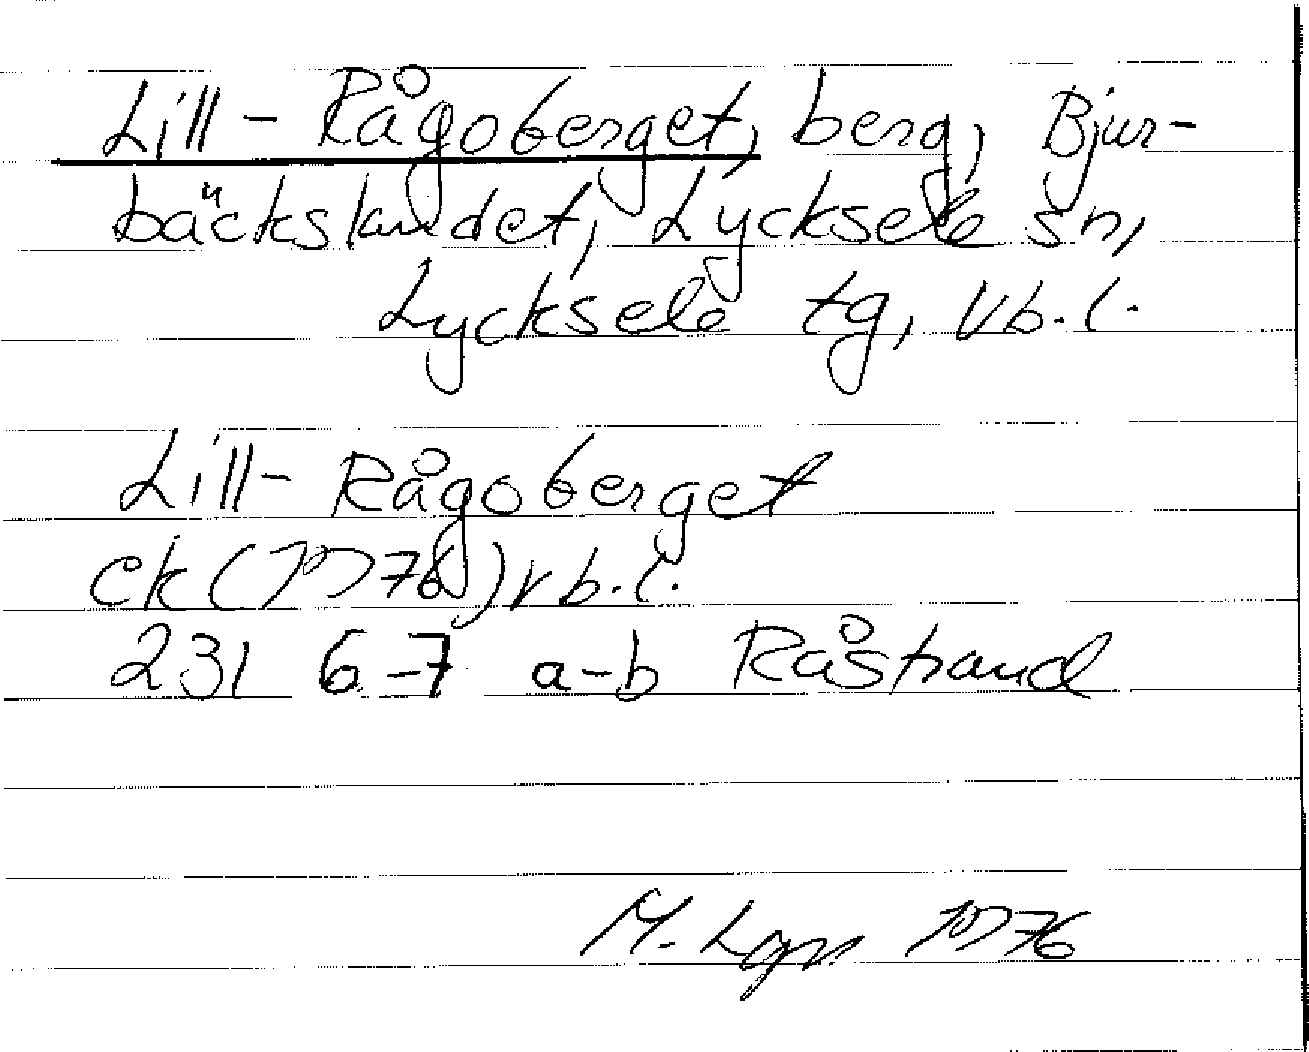 Lill-Rågoberget, berg, Bjur-
bäckslandet, Lycksele sn,
Lycksele tg, Vb.l.
Lill-Rågoberget
ek (1976) Vb.l.
23I 6-7 a-b Råstrand
M. Lgn 1976